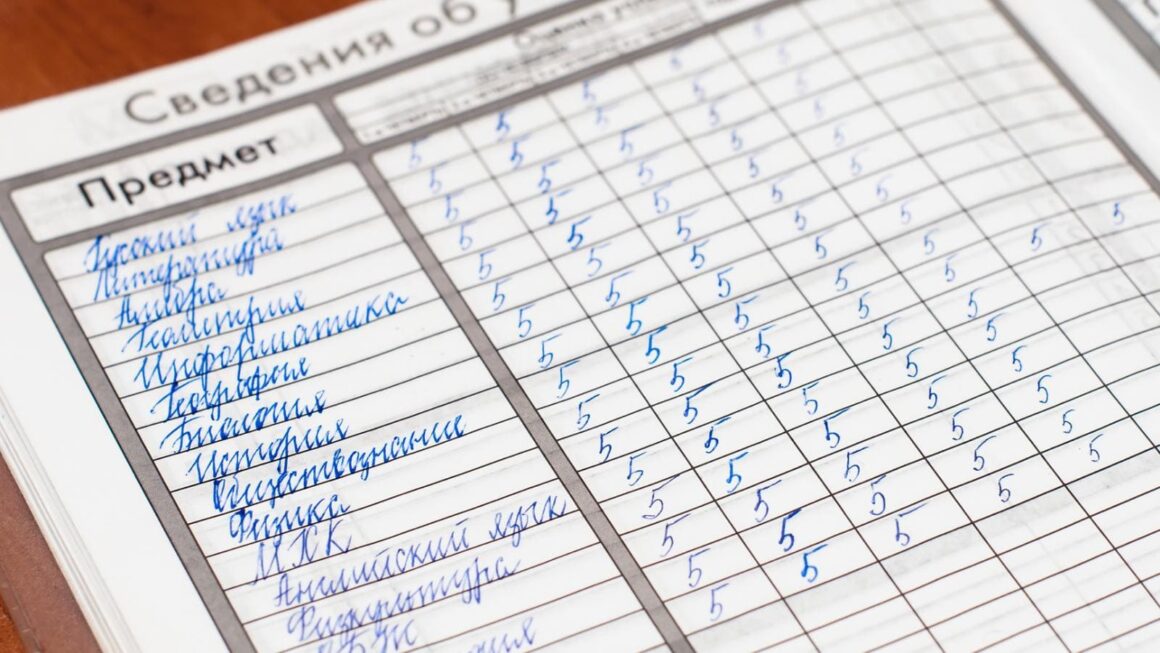 Сведения об у
Предмет
Русский язык 5 5 5 5 5
Литература 5 5 5 5 5
Алгебра 5 5 5 5 5
Геометрия 5 5 5 5 5
Информатика 5 5 5 5 5
География 5 5 5 5 5
Биология 5 5 5 5 5
История 5 5 5 5 5
Обществознание 5 5 5 5 5
Физика 5 5 5 5 5
МХК 5 5 5 5 5
Английский язык 5 5 5 5 5
Физкультура 5 5 5 5 5
ОБЖ 5 5 5 5 5